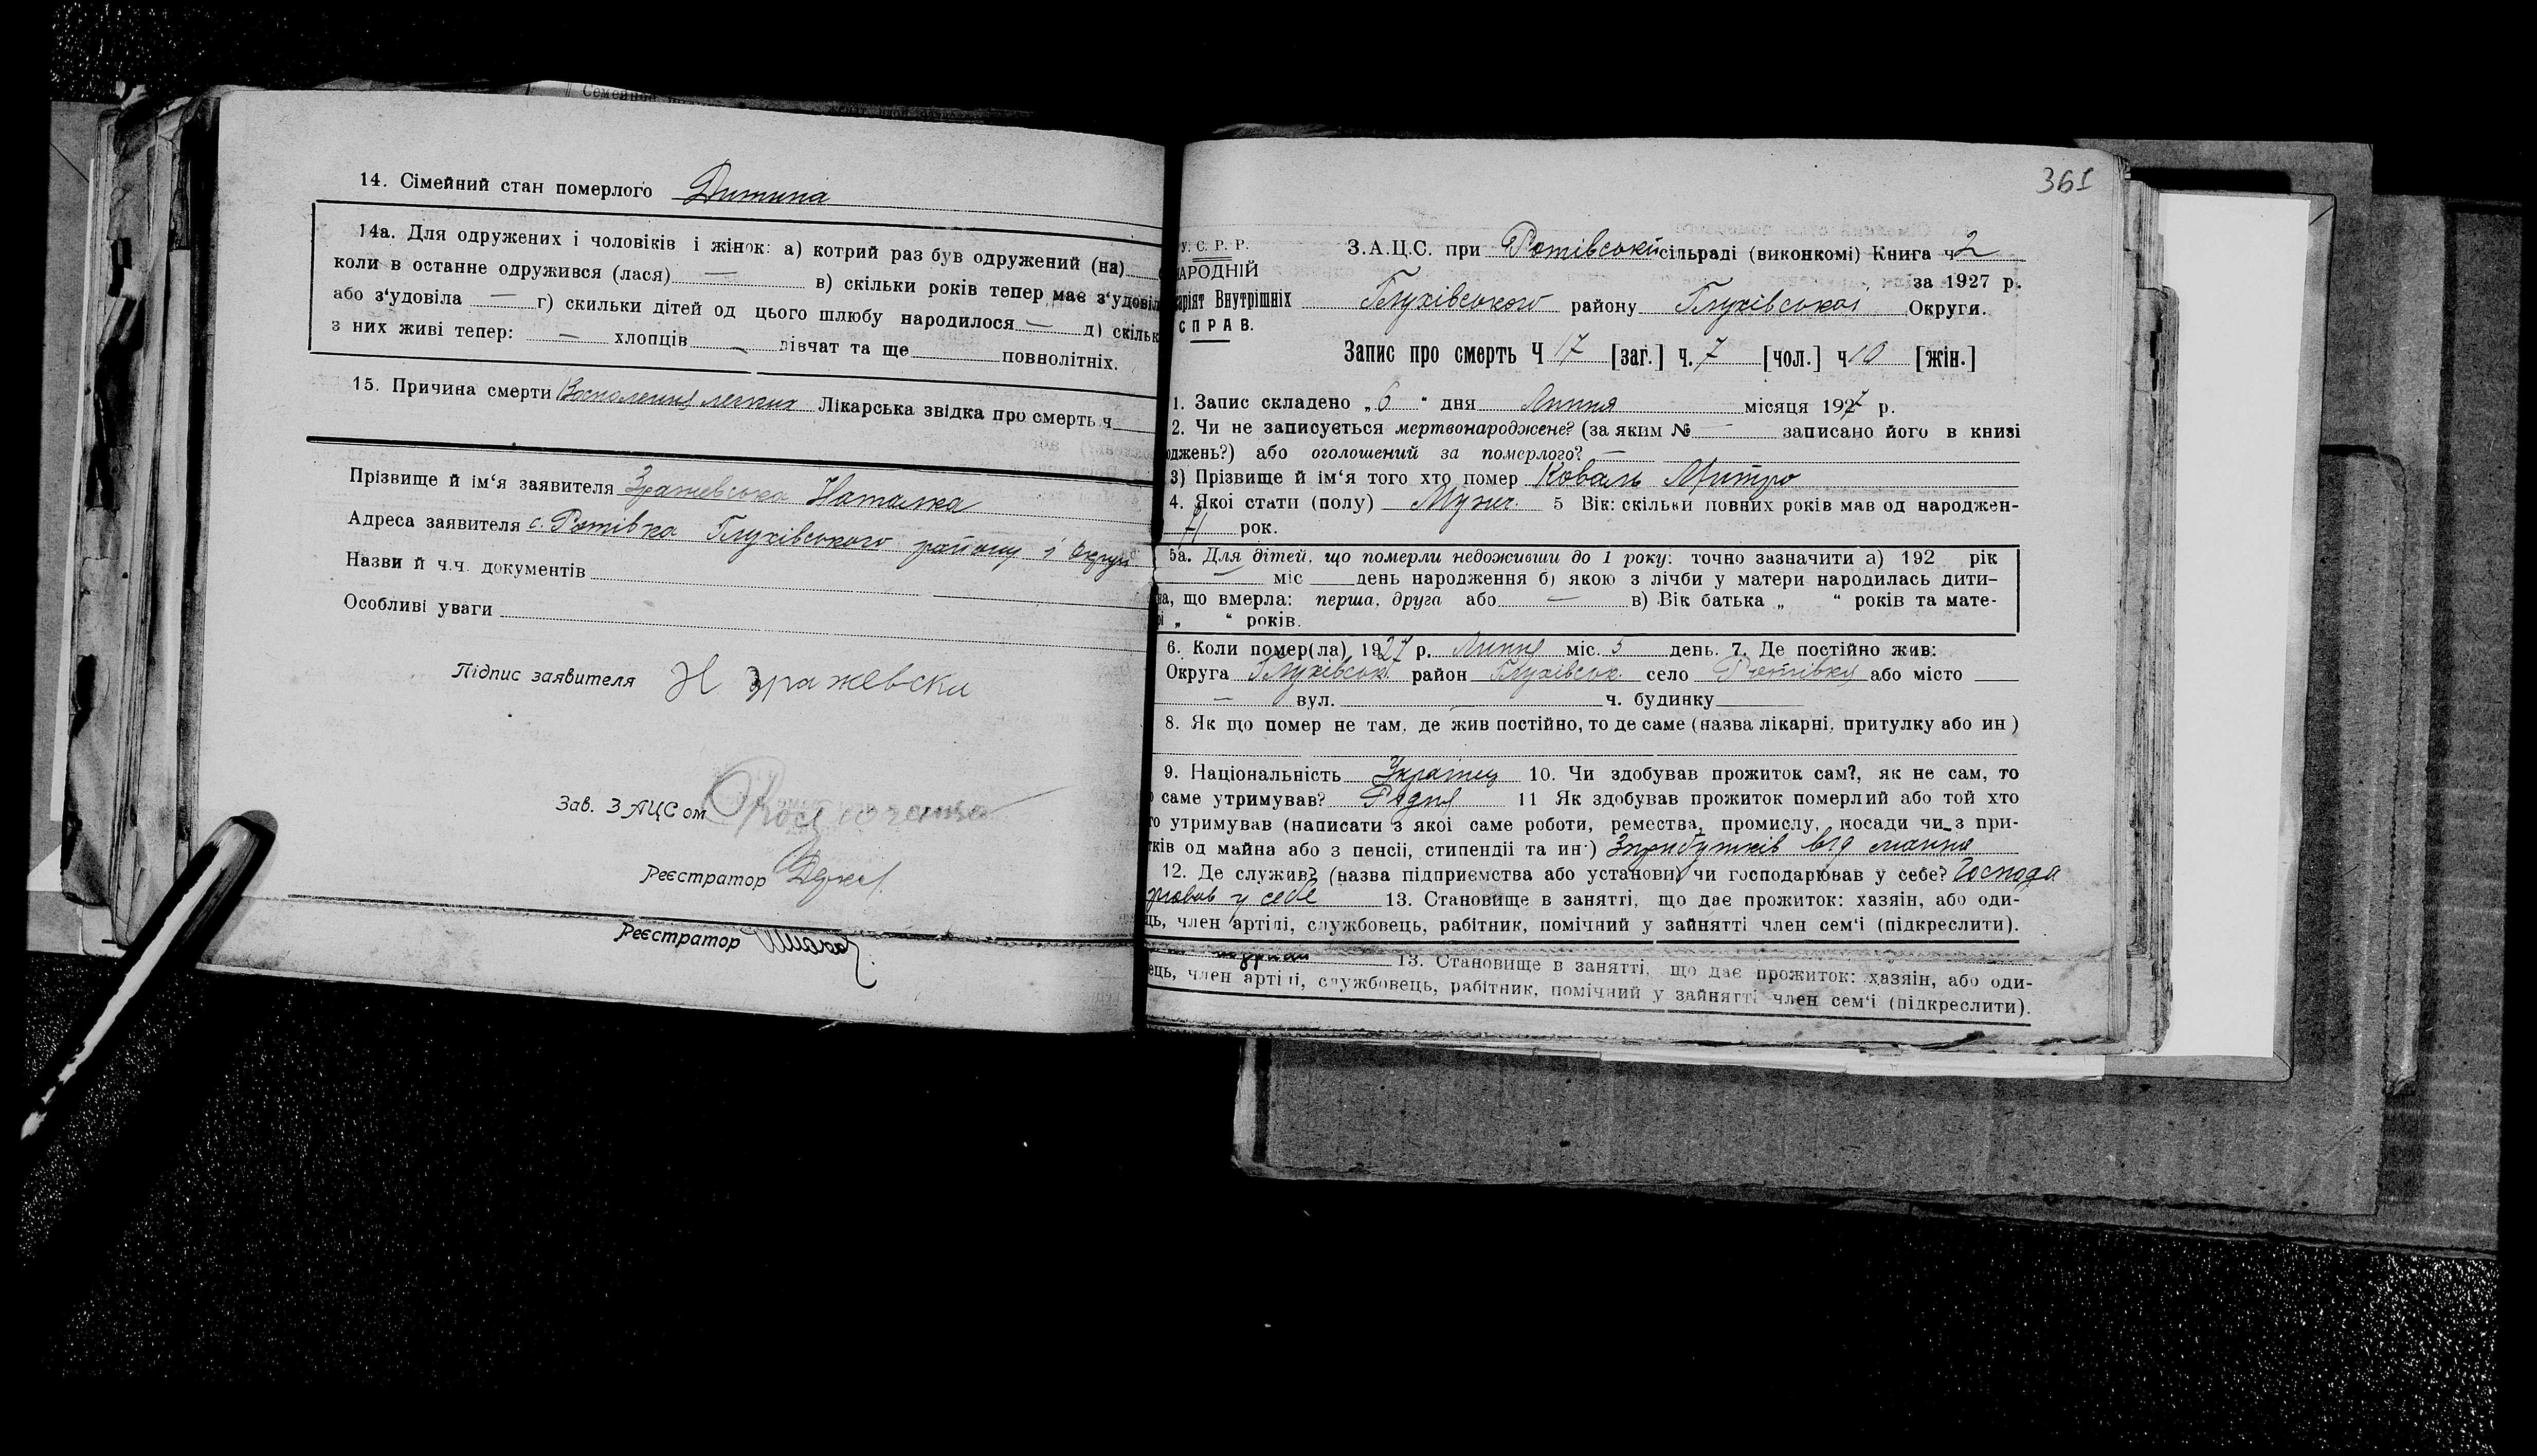 14. Сімейний стан померлого Дитина
14а. Для одружених і чоловіків і жінок: а) котрий раз був одружений (на)
коли в останне одружився (лася) — в) скільки років тепер має з'удовіл
або з'удовіла — г) скильки дітей од цього шлюбу народилося — д) скільк
з них живі тепер: — хлопців — дівчат та ще повнолітніх.
15. Причина смерти Воспаления легких Лікарська звідка про смерть ч.
Прізвище й ім'я заявителя Зражевська Наталка
Адреса заявителя с. Ротівка Глухівського району і Округи
Назви й ч.ч. документів
Особливі уваги
Підпис заявителя Н Зражевска
Зав. ЗАЦСом
Реєстратор
Реєстратор
361
У. С. Р. Р.
АРОДНІЙ
аріят Внутрішніх
СПРАВ.
З.А.Ц.С. при Ротівській сільраді (виконкомі) Книга ч 2
за 1927 р.
Глухівського району Глухівської Округи.
Запис про смерть Ч 17 [заг.] ч. 7 [чол.] ч 10 [жін.]
1. Запис складено „6" дня Липня місяця 1927 р.
2. Чи не записується мертвонароджене? (за яким № — записано його в книзі
оджень?) або оголошений за померлого? —
3) Прізвище й ім'я того хто помер Коваль Митро
4. Якої стати (полу) Мужч. 5 Вік: скільки повних років мав од народжен-
рок.
5а. Для дітей, що померли недоживши до 1 року: точно зазначити а) 192 рік
— міс день народження б) якою з лічби у матери народилась дити-
на, що вмерла: перша, друга або — в) Вік батька „ " років та мате-
рі „ " років.
6. Коли помер(ла) 1927 р. Липня міс. 5 день. 7. Де постійно жив:
Округа Глухівськ. район Глухівськ. село Ротівка або місто —
— вул. ч. будинку
8. Як що помер не там, де жив постійно, то де саме (назва лікарні, притулку або ин)
9. Національність Українец 10. Чи здобував прожиток сам?, як не сам, то
саме утримував? Родня 11 Як здобував прожиток померлий або той хто
го утримував (написати з якоі саме роботи, ремества, промислу, посади чи з при-
тків од майна або з пенсіі, стипендіі та ин.) Зприбутків від майна
12. Де служив? (назва підприємства або установи) чи господарював у себе? Господа
рював у себе 13. Становище в занятті, що дає прожиток: хазяін, або оди-
ць, член артілі, службовець, рабітник, помічний у зайнятті член сем'і (підкреслити).
13. Становище в занятті, що дає прожиток: хазяін, або оди-
ець, член артілі, службовець, рабітник, помічний у зайнятті член сем'і (підкреслити).